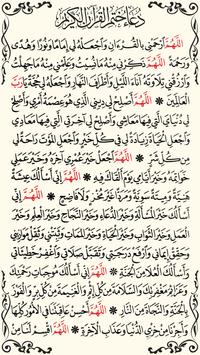 دُعَاءُ خَتْمِ القُرْآنِ الكَرِيْمِ
اللَّهُمَّ ارْحَمْنِي بِالقُرْءَانِ وَاجْعَلْهُ لِي إِمَامًا وَنُورًا وَهُدًى
وَرَحْمَةً ۞ اللَّهُمَّ ذَكِّرْنِي مِنْهُ مَا نَسِيتُ وَعَلِّمْنِي مِنْهُ مَا جَهِلْتُ
وَارْزُقْنِي تِلَاوَتَهُ آنَاءَ اللَّيْلِ وَأَطْرَافَ النَّهَارِ وَاجْعَلْهُ لِي حُجَّةً يَا رَبَّ
العَالَمِينَ ۞ اللَّهُمَّ أَصْلِحْ لِي دِينِي الَّذِي هُوَ عِصْمَةُ أَمْرِي وَأَصْلِحْ
لِي دُنْيَايَ الَّتِي فِيهَا مَعَاشِي وَأَصْلِحْ لِي آخِرَتِي الَّتِي فِيهَا مَعَادِي
وَاجْعَلِ الحَيَاةَ زِيَادَةً لِي فِي كُلِّ خَيْرٍ وَاجْعَلِ المَوْتَ رَاحَةً لِي
مِنْ كُلِّ شَرٍّ ۞ اللَّهُمَّ اجْعَلْ خَيْرَ عُمْرِي آخِرَهُ وَخَيْرَ عَمَلِي
خَوَاتِمَهُ وَخَيْرَ أَيَّامِي يَوْمَ أَلْقَاكَ فِيهِ ۞ اللَّهُمَّ إِنِّي أَسْأَلُكَ عِيشَةً
هَنِيَّةً وَمِيتَةً سَوِيَّةً وَمَرَدًّا غَيْرَ مُخْزٍ وَلَا فَاضِحٍ ۞ اللَّهُمَّ إِنِّي
أَسْأَلُكَ خَيْرَ المَسْأَلَةِ وَخَيْرَ الدُّعَاءِ وَخَيْرَ النَّجَاحِ وَخَيْرَ العِلْمِ وَخَيْرَ
العَمَلِ وَخَيْرَ الثَّوَابِ وَخَيْرَ الحَيَاةِ وَخَيْرَ المَمَاتِ وَثَبِّتْنِي وَثَقِّلْ مَوَازِينِي
وَحَقِّقْ إِيمَانِي وَارْفَعْ دَرَجَتِي وَتَقَبَّلْ صَلَاتِي وَاغْفِرْ خَطِيئَاتِي
وَأَسْأَلُكَ العُلَا مِنَ الجَنَّةِ ۞ اللَّهُمَّ إِنِّي أَسْأَلُكَ مُوجِبَاتِ رَحْمَتِكَ
وَعَزَائِمَ مَغْفِرَتِكَ وَالسَّلَامَةَ مِنْ كُلِّ إِثْمٍ وَالغَنِيمَةَ مِنْ كُلِّ بِرٍّ وَالفَوْزَ
بِالجَنَّةِ وَالنَّجَاةَ مِنَ النَّارِ ۞ اللَّهُمَّ أَحْسِنْ عَاقِبَتَنَا فِي الأُمُورِ كُلِّهَا
وَأَجِرْنَا مِنْ خِزْيِ الدُّنْيَا وَعَذَابِ الآخِرَةِ ۞ اللَّهُمَّ اقْسِمْ لَنَا مِنْ